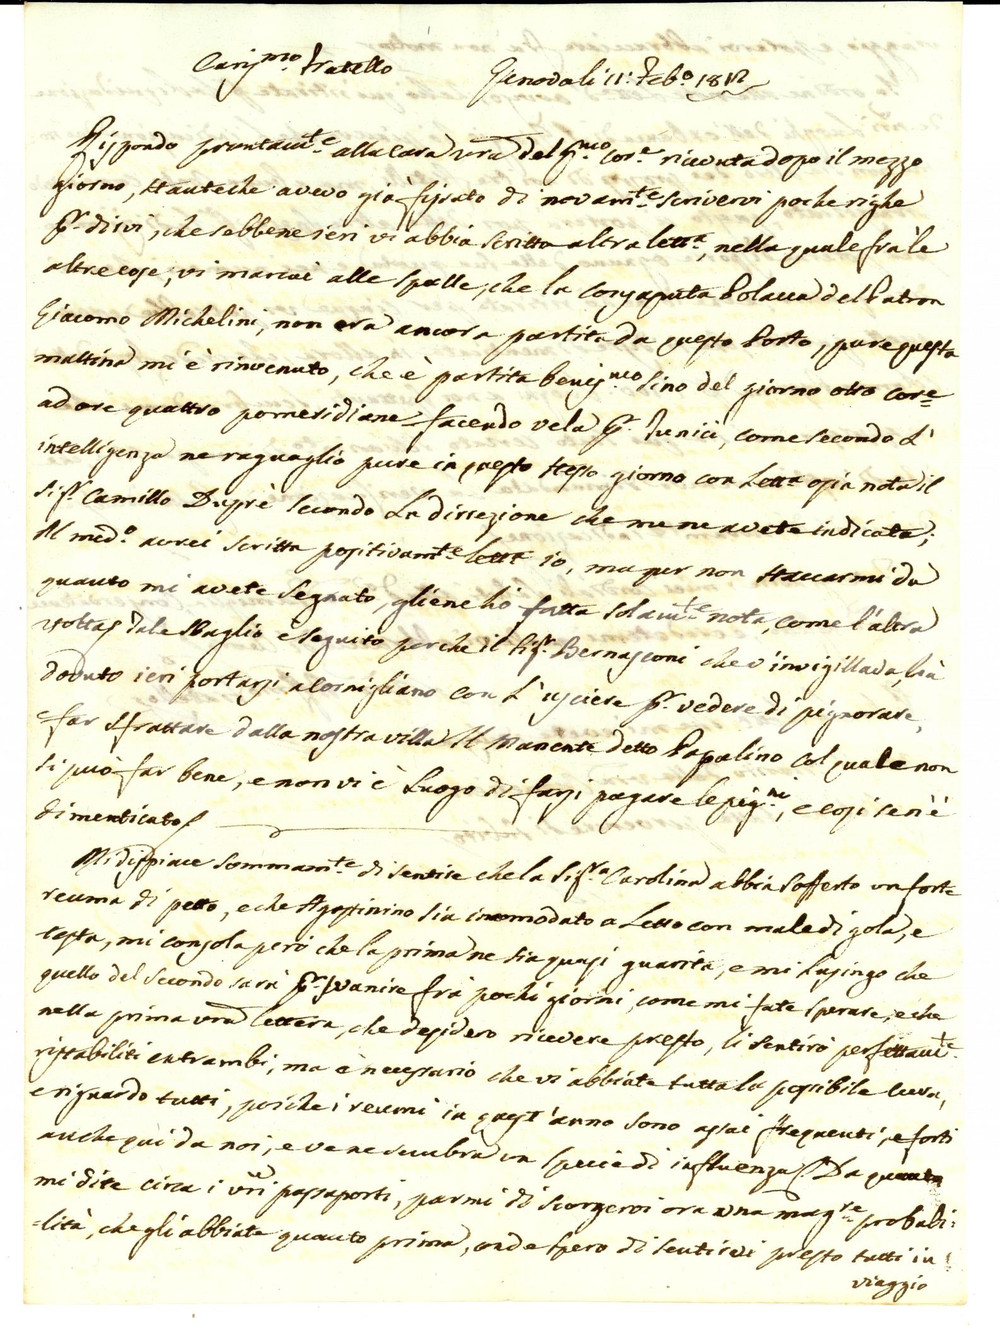 Cariss.mo Fratello Genova li 11: Feb.o 1812
Rispondo prontam.te alla cara vra del p.mo cor.e ricevuta dopo il mezzo
giorno, stanteche avevo già fissato di novam.te scrivervi poche righe
p. dirvi, che sebbene ieri vi abbia scritto altra lett.a, nella quale frà le
altre cose, vi marcai alle spalle, che la consaputa Polacca del Patron
Giacomo Michelini, non era ancora partita da questo Porto, pure questa
mattina mi è rinvenuto, che è partita beniss.mo sino del giorno otto cor.e
ad ore quattro pomeridiane facendo vela p. Tunici, come secondo L'
intelligenza ne raguaglio pure in questo stesso giorno con Lett.a o sia nota il
Sig.r Camillo Duprè secondo La direzione che me ne avete indicata;
Al med.o avrei scritta positivam.te lett.a io, ma per non staccarmi da
quanto mi avete segnato, gliene hò fatta solam.te nota, come l'altra
volta; Tale sbaglio è seguito perche il Sig.r Bernasconi che v'invigillava, hà
dovuto ieri portarsi a Cornigliano con L'usciere p. vedere di pignorare,
e far sfrattare dalla nostra villa Il Manente detto Papalino col quale non
si può far bene, e non vi è Luogo di farsi pagare le pig.ni, e così sen'è
dimenticato/.
Mi dispiace sommam.te di sentire che la Sig.ra Carolina abbia sofferto un forte
reuma di petto, e che Agostinino sia incomodato a Letto con male di gola, e
testa, mi consola però che la prima ne sia quasi guarita, e mi lusingo che
quello del secondo sarà p. svanire frà pochi giorni, come mi fate sperare, e che
nella prima vra lettera, che desidero ricevere presto, li sentirò perfettam.te
ristabiliti entrambi, ma è necessario che vi abbiate tutta la possibile cura,
e riguardo tutti, poiche i reumi in quest'anno sono assai frequenti, e forti
anche quì da noi, e ve ne sembra un specie di influenza/. Da quanto
mi dite circa i vri passaporti, parmi di scorgervi ora una mag.re probabi=
=lità, che gli abbiate quanto prima, onde spero di sentirvi presto tutti in
viaggio